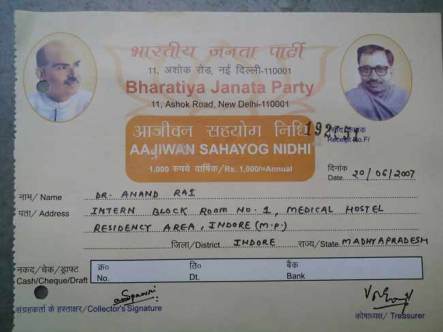 भारतीय जनता पार्टी
11, अशोक रोड, नई दिल्ली-110001
Bharatiya Janata Party
11, Ashok Road, New Delhi-110001
आजीवन सहयोग निधि
AAJIWAN SAHAYOG NIDHI
Receipt No.F/
1,000 रूपये वार्षिक/Rs. 1,000/=Annual
दिनांक
Date 20/06/2007
नाम/ Name DR. ANAND RAI
पता/ Address INTERN BLOCK ROOM NO. 1, MEDICAL HOSTEL
RESIDENCY AREA, INDORE (M.P.)
जिला/District INDORE राज्य/State MADHYAPRADESH
नकद/चेक/ड्राफ्ट क्र० ति० बैंक
Cash/Cheque/Draft No. Dt. Bank
संग्रहकर्ता के हस्ताक्षर/Collector's Signature कोषाध्यक्ष/ Treasurer